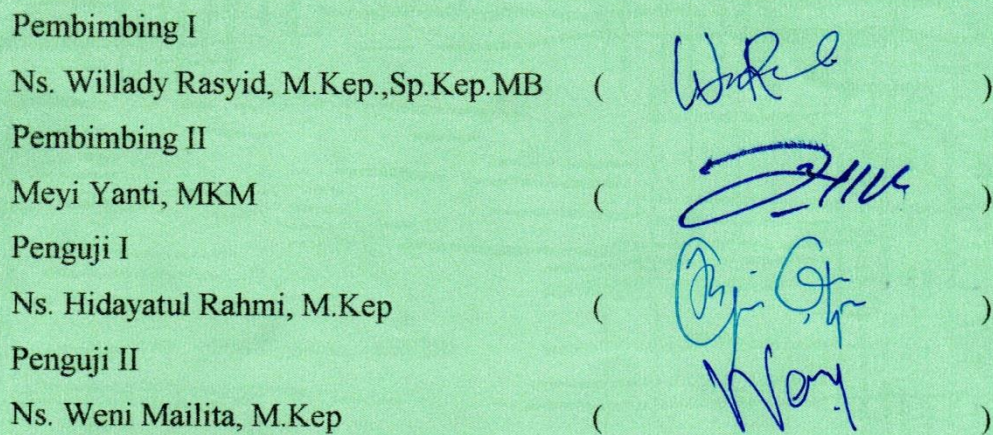 Pembimbing I
Ns. Willady Rasyid, M.Kep.,Sp.Kep.MB ( )
Pembimbing II
Meyi Yanti, MKM ( )
Penguji I
Ns. Hidayatul Rahmi, M.Kep ( )
Penguji II
Ns. Weni Mailita, M.Kep ( )